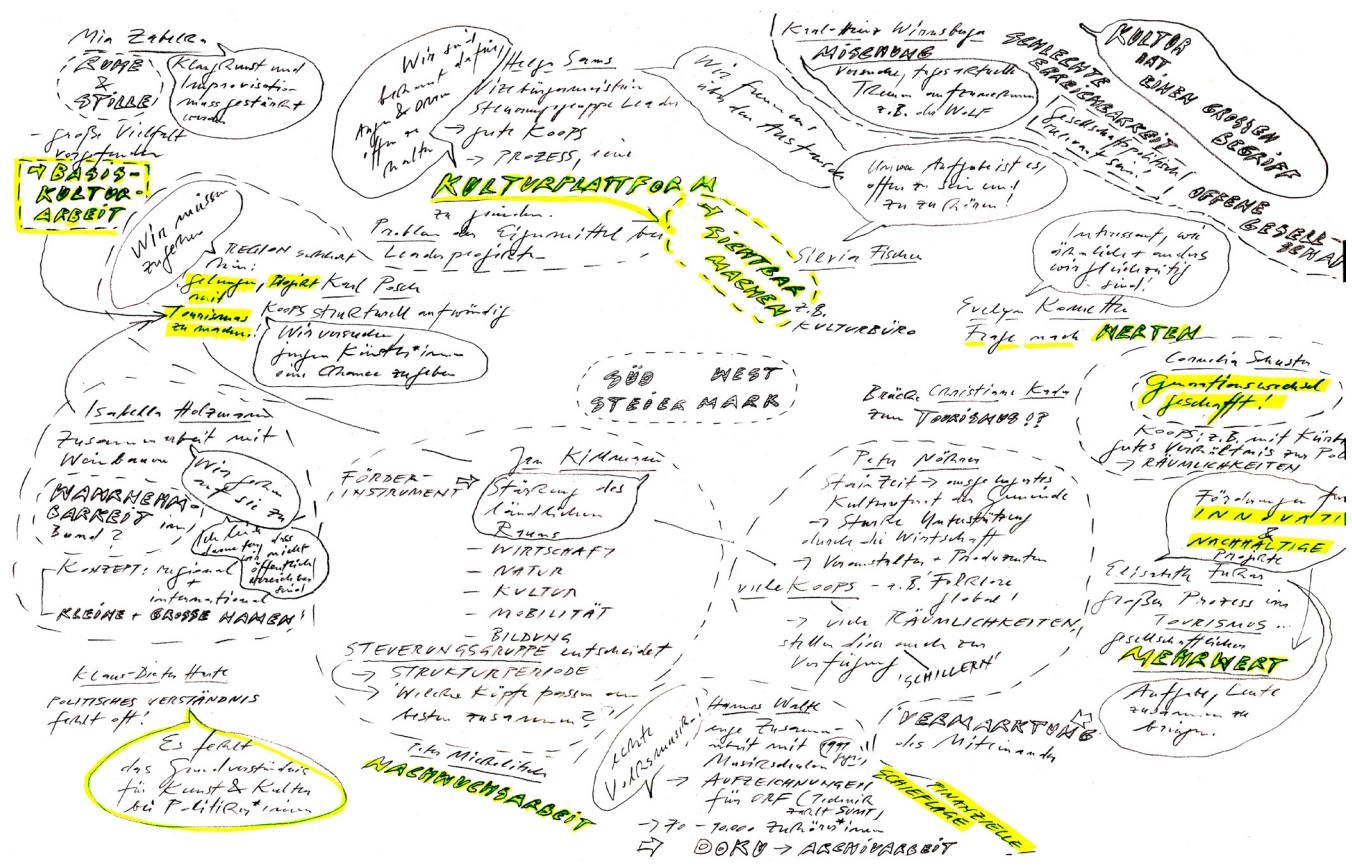 Mia Zabelka
RUHE
&
STILLE
Klangkunst und
Improvisation
muss gestärkt
werden
- große Vielfalt
vorgefunden
⇒ BASIS-
KULTUR-
ARBEIT
Wir sind
bekannt dafür
Augen & Ohren
offen zu
halten
Helga Sams
Vizebürgermeisterin
Steuerungsgruppe Leader
→ gute Koops
→ PROZESS, eine
KULTURPLATTFORM
zu gründen.
Problem der Eigenmittel bei
Leaderprojekten
→ SICHTBAR
MACHEN
z.B.
KULTURBÜRO
Wir freuen uns
über den Austausch
Karl-Heinz
MISCHUNG
Versuche, tagesaktuelle
Themen aufzunehmen
z.B. der Wolf
SCHLECHTE
ERREICHBARKEIT
Gesellschaftspolitisch
relevant sein!
KULTUR
HAT
EINEN GROSSEN
BEGRIFF
OFFENE
GESELL-
SCHAFT
Unsere Aufgabe ist es,
offen zu sein und
zuzuhören!
Silvia Fischer
Interessant, wie
ähnlich + anders
wir gleichzeitig
sind!
Evelyn
Frage nach WERTEN
Wir müssen
zugehen
REGION
gelungen, Projekt
mit
Tourismus
zu machen!
Karl Posch
KOOPS strukturell aufwändig
Wir versuchen
jungen Künstler*innen
eine Chance zu geben
SÜD WEST
STEIERMARK
Brücke Christiane Kada
zum TOURISMUS!?
Cornelia Schuster
Generationswechsel
geschafft!
KOOPS: z.B. mit
gutes Verhältnis zur
→ RÄUMLICHKEITEN
Isabella Holzmann
Zusammenarbeit mit
Weinbauern
Wir gehen
auf sie zu
WAHRNEHM-
BARKEIT im
Bund?
Ich leide
darunter, dass
wir nicht
öffentlich
erreichbar
sind
KONZEPT: regional
+
international
KLEINE + GROSSE NAMEN!
FÖRDER-
INSTRUMENT ⇒
Stärkung des
ländlichen
Raums
- WIRTSCHAFT
- NATUR
- KULTUR
- MOBILITÄT
- BILDUNG
STEUERUNGSGRUPPE entscheidet
→ STRUKTURPERIODE
→ Welche Köpfe passen am
besten zusammen?
Peter
StainZeit → ausgelagertes
Kulturreferat der Gemeinde
→ Starke Unterstützung
durch die Wirtschaft
→ Veranstalter + Produzenten
viele KOOPS - z.B. Folklore
global!
→ viele RÄUMLICHKEITEN,
stellen diese auch zur
Verfügung
'SCHILLERN'
Förderungen für
INNOVATIVE
&
NACHHALTIGE
Projekte
Elisabeth Fukar
großer Prozess im
TOURISMUS...
gesellschaftlicher
MEHRWERT
Aufgabe, Leute
zusammen zu
bringen.
VERMARKTUNG
des Miteinander
Klaus-Dieter
POLITISCHES VERSTÄNDNIS
fehlt oft!
Es fehlt
das Grundverständnis
für Kunst & Kultur
bei Politiker*innen
Peter
NACHWUCHSARBEIT
echte
Volksmusik
Hannes
enge Zusammen-
arbeit mit
Musikschulen
1991
→ AUFZEICHNUNGEN
für ORF (Technik
zahlt
→ 70 - 90.000 Zuhörer*innen
⇒ DOKU → ARCHIVARBEIT
FINANZIELLE
SCHIEFLAGE